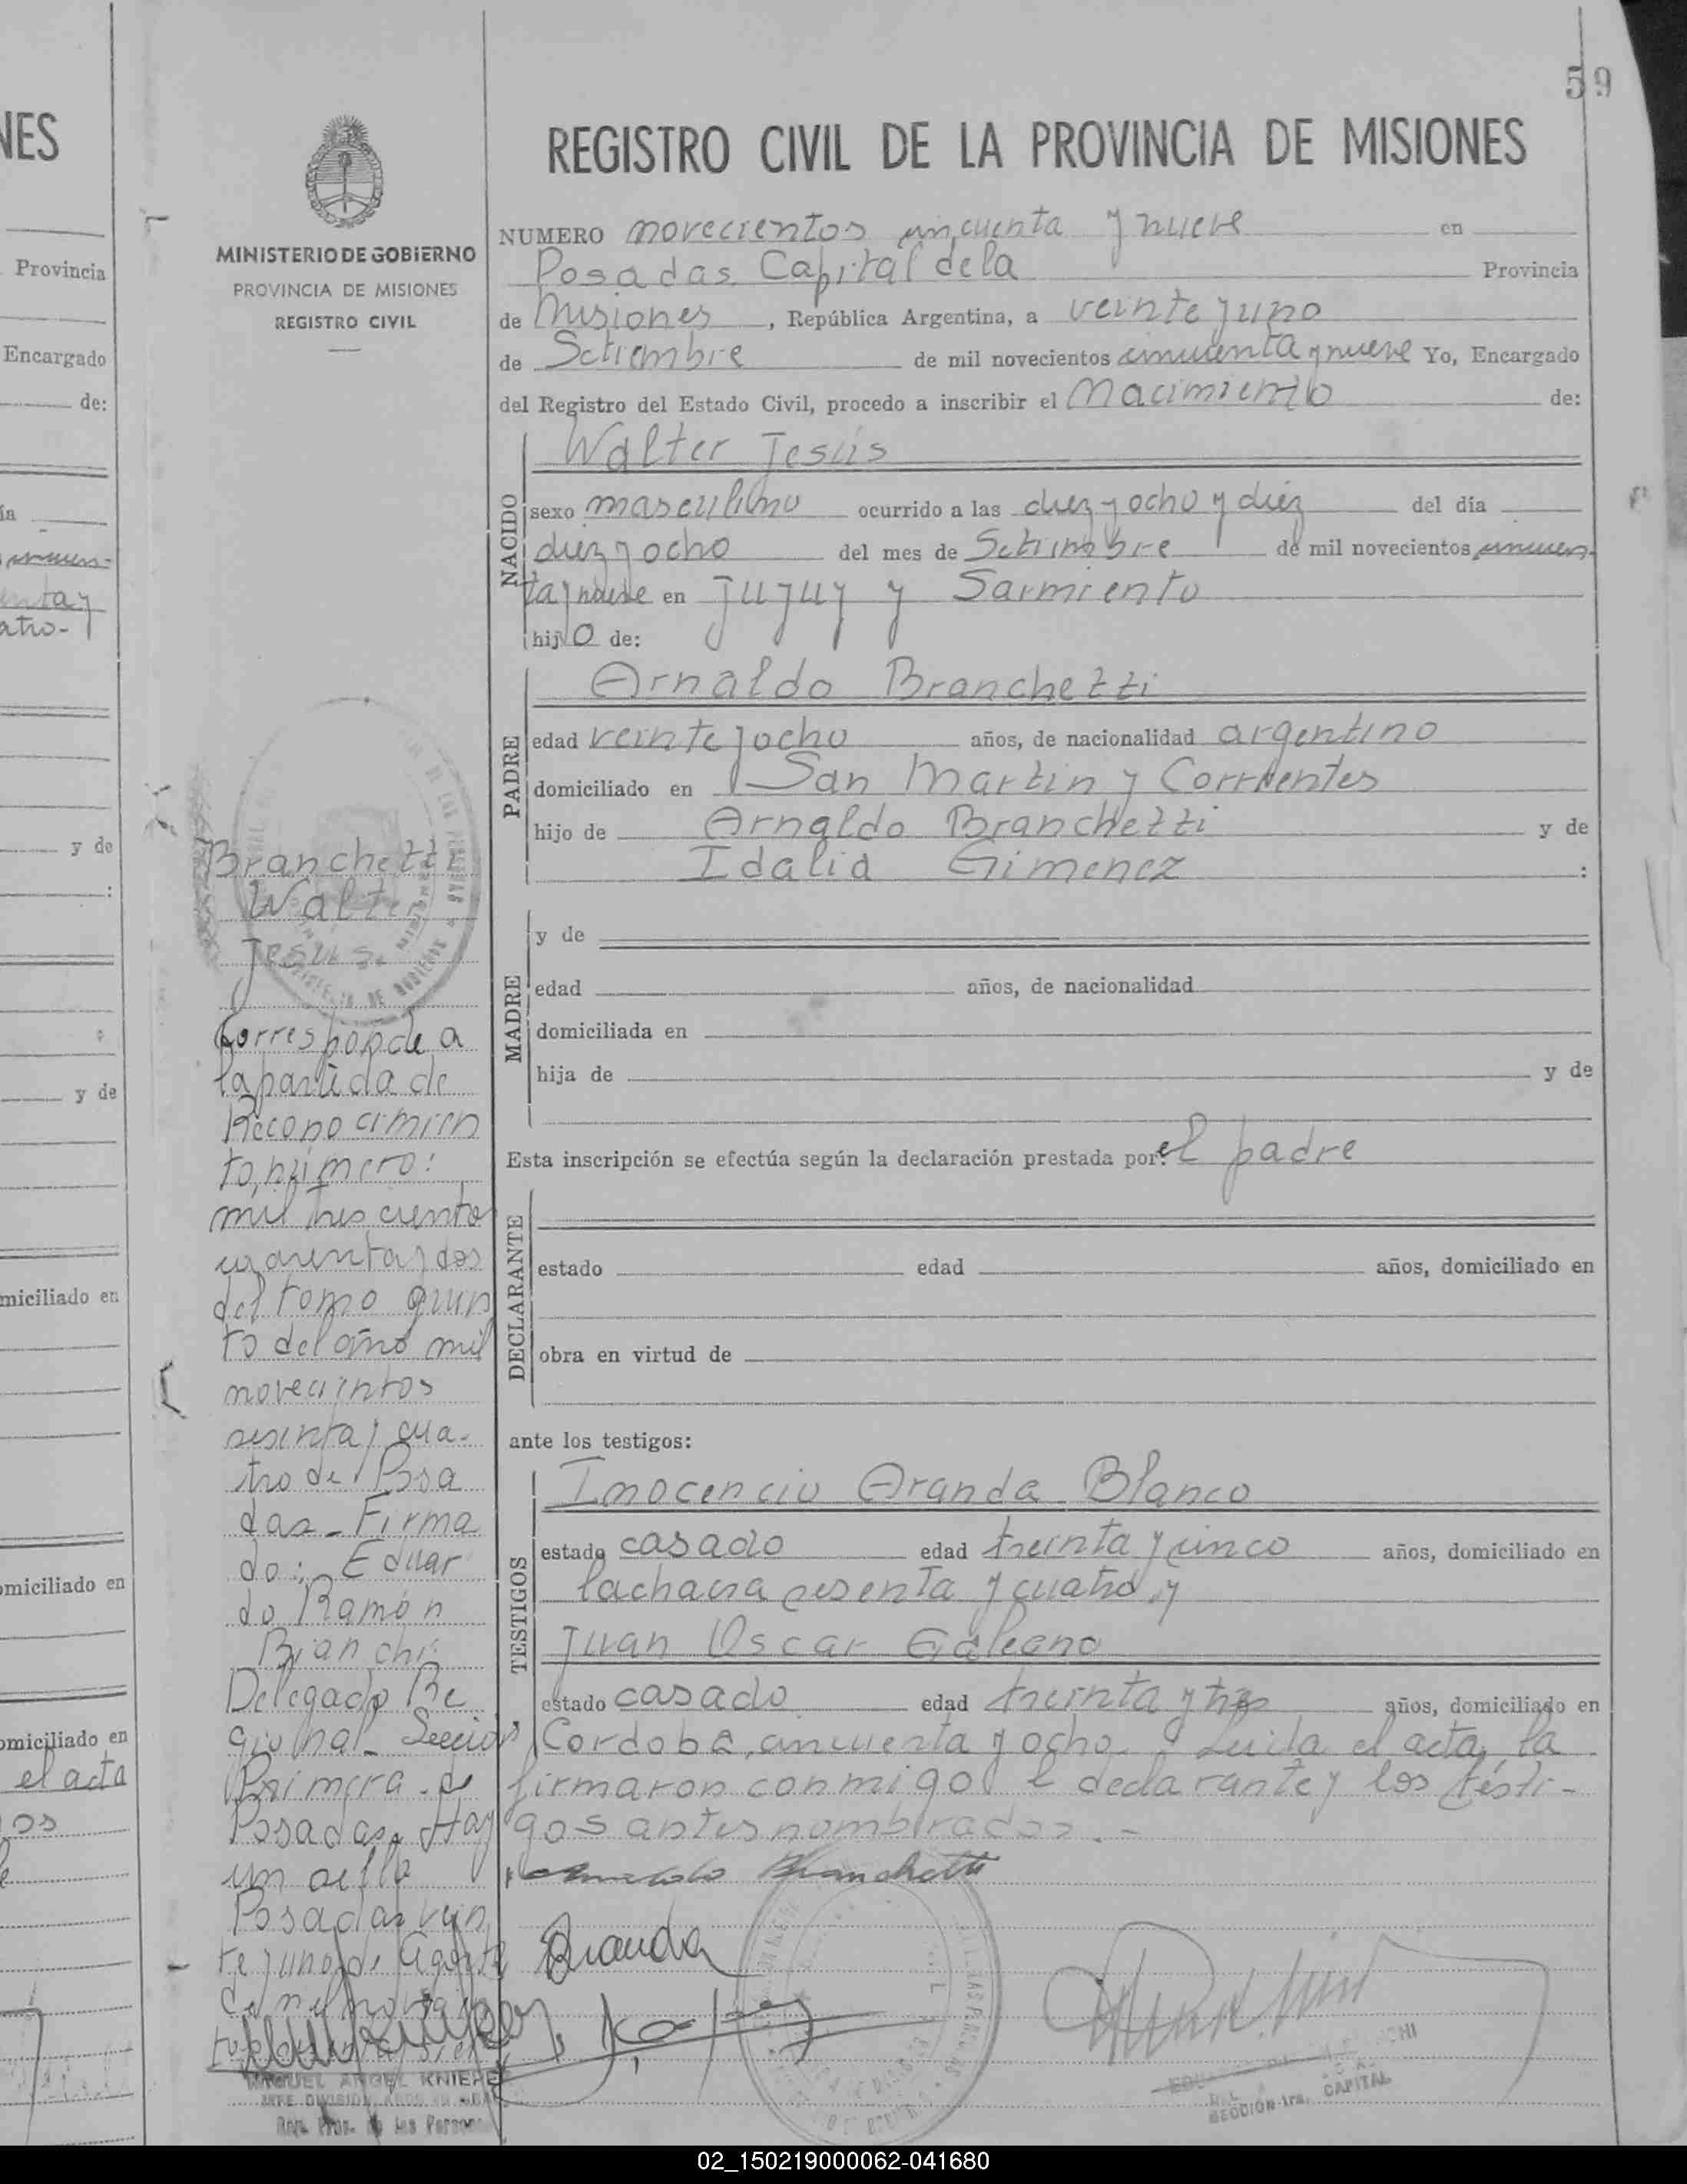 59
NES
Provincia
Encargado
de:
y de
y de
miciliado en
omiciliado en
omiciliado en
el acta
os
MINISTERIO DE GOBIERNO
PROVINCIA DE MISIONES
REGISTRO CIVIL
Branchetti
Walter
Jesus.
Corresponde a
la partida de
Reconocimien
to, número:
mil trescientos
cuarenta y dos
del tomo quin
to del año mil
novecientos
sesenta y cua-
tro de Posa
das - Firma
do: Eduar
do Ramón
Bianchi
Delegado Re
gional - Sección
Primera - de
Posadas. Hay
un sello
Posadas vein
te y uno de Agosto
de mil
MIGUEL ANGEL KNIEHE
REGISTRO CIVIL DE LA PROVINCIA DE MISIONES
NUMERO novecientos cincuenta y nueve en
Posadas Capital de la Provincia
de Misiones, República Argentina, a veinte y uno
de Setiembre de mil novecientos cincuenta y nueve Yo, Encargado
del Registro del Estado Civil, procedo a inscribir el Nacimiento de:
NACIDO
Walter Jesús
sexo masculino ocurrido a las diez y ocho y diez del día
diez y ocho del mes de Setiembre de mil novecientos cincuen-
ta y nueve en Jujuy y Sarmiento
hijo de:
PADRE
Arnaldo Branchetti
edad veinte y ocho años, de nacionalidad argentino
domiciliado en San Martin y Corrientes
hijo de Arnaldo Branchetti y de
Idalia Gimenez :
MADRE
y de
edad años, de nacionalidad
domiciliada en
hija de y de
Esta inscripción se efectúa según la declaración prestada por: el padre
DECLARANTE
estado edad años, domiciliado en
obra en virtud de
ante los testigos:
TESTIGOS
Inocencio Aranda Blanco
estado casado edad treinta y cinco años, domiciliado en
la chacra sesenta y cuatro y
Juan Oscar Galeano
estado casado edad treinta y tres años, domiciliado en
Cordoba, cincuenta y ocho. Leída el acta, la
firmaron conmigo el declarante y los testi-
gos antes nombrados. -
Arnaldo Branchetti
Aranda
SECCION 1ra. CAPITAL
02_150219000062-041680